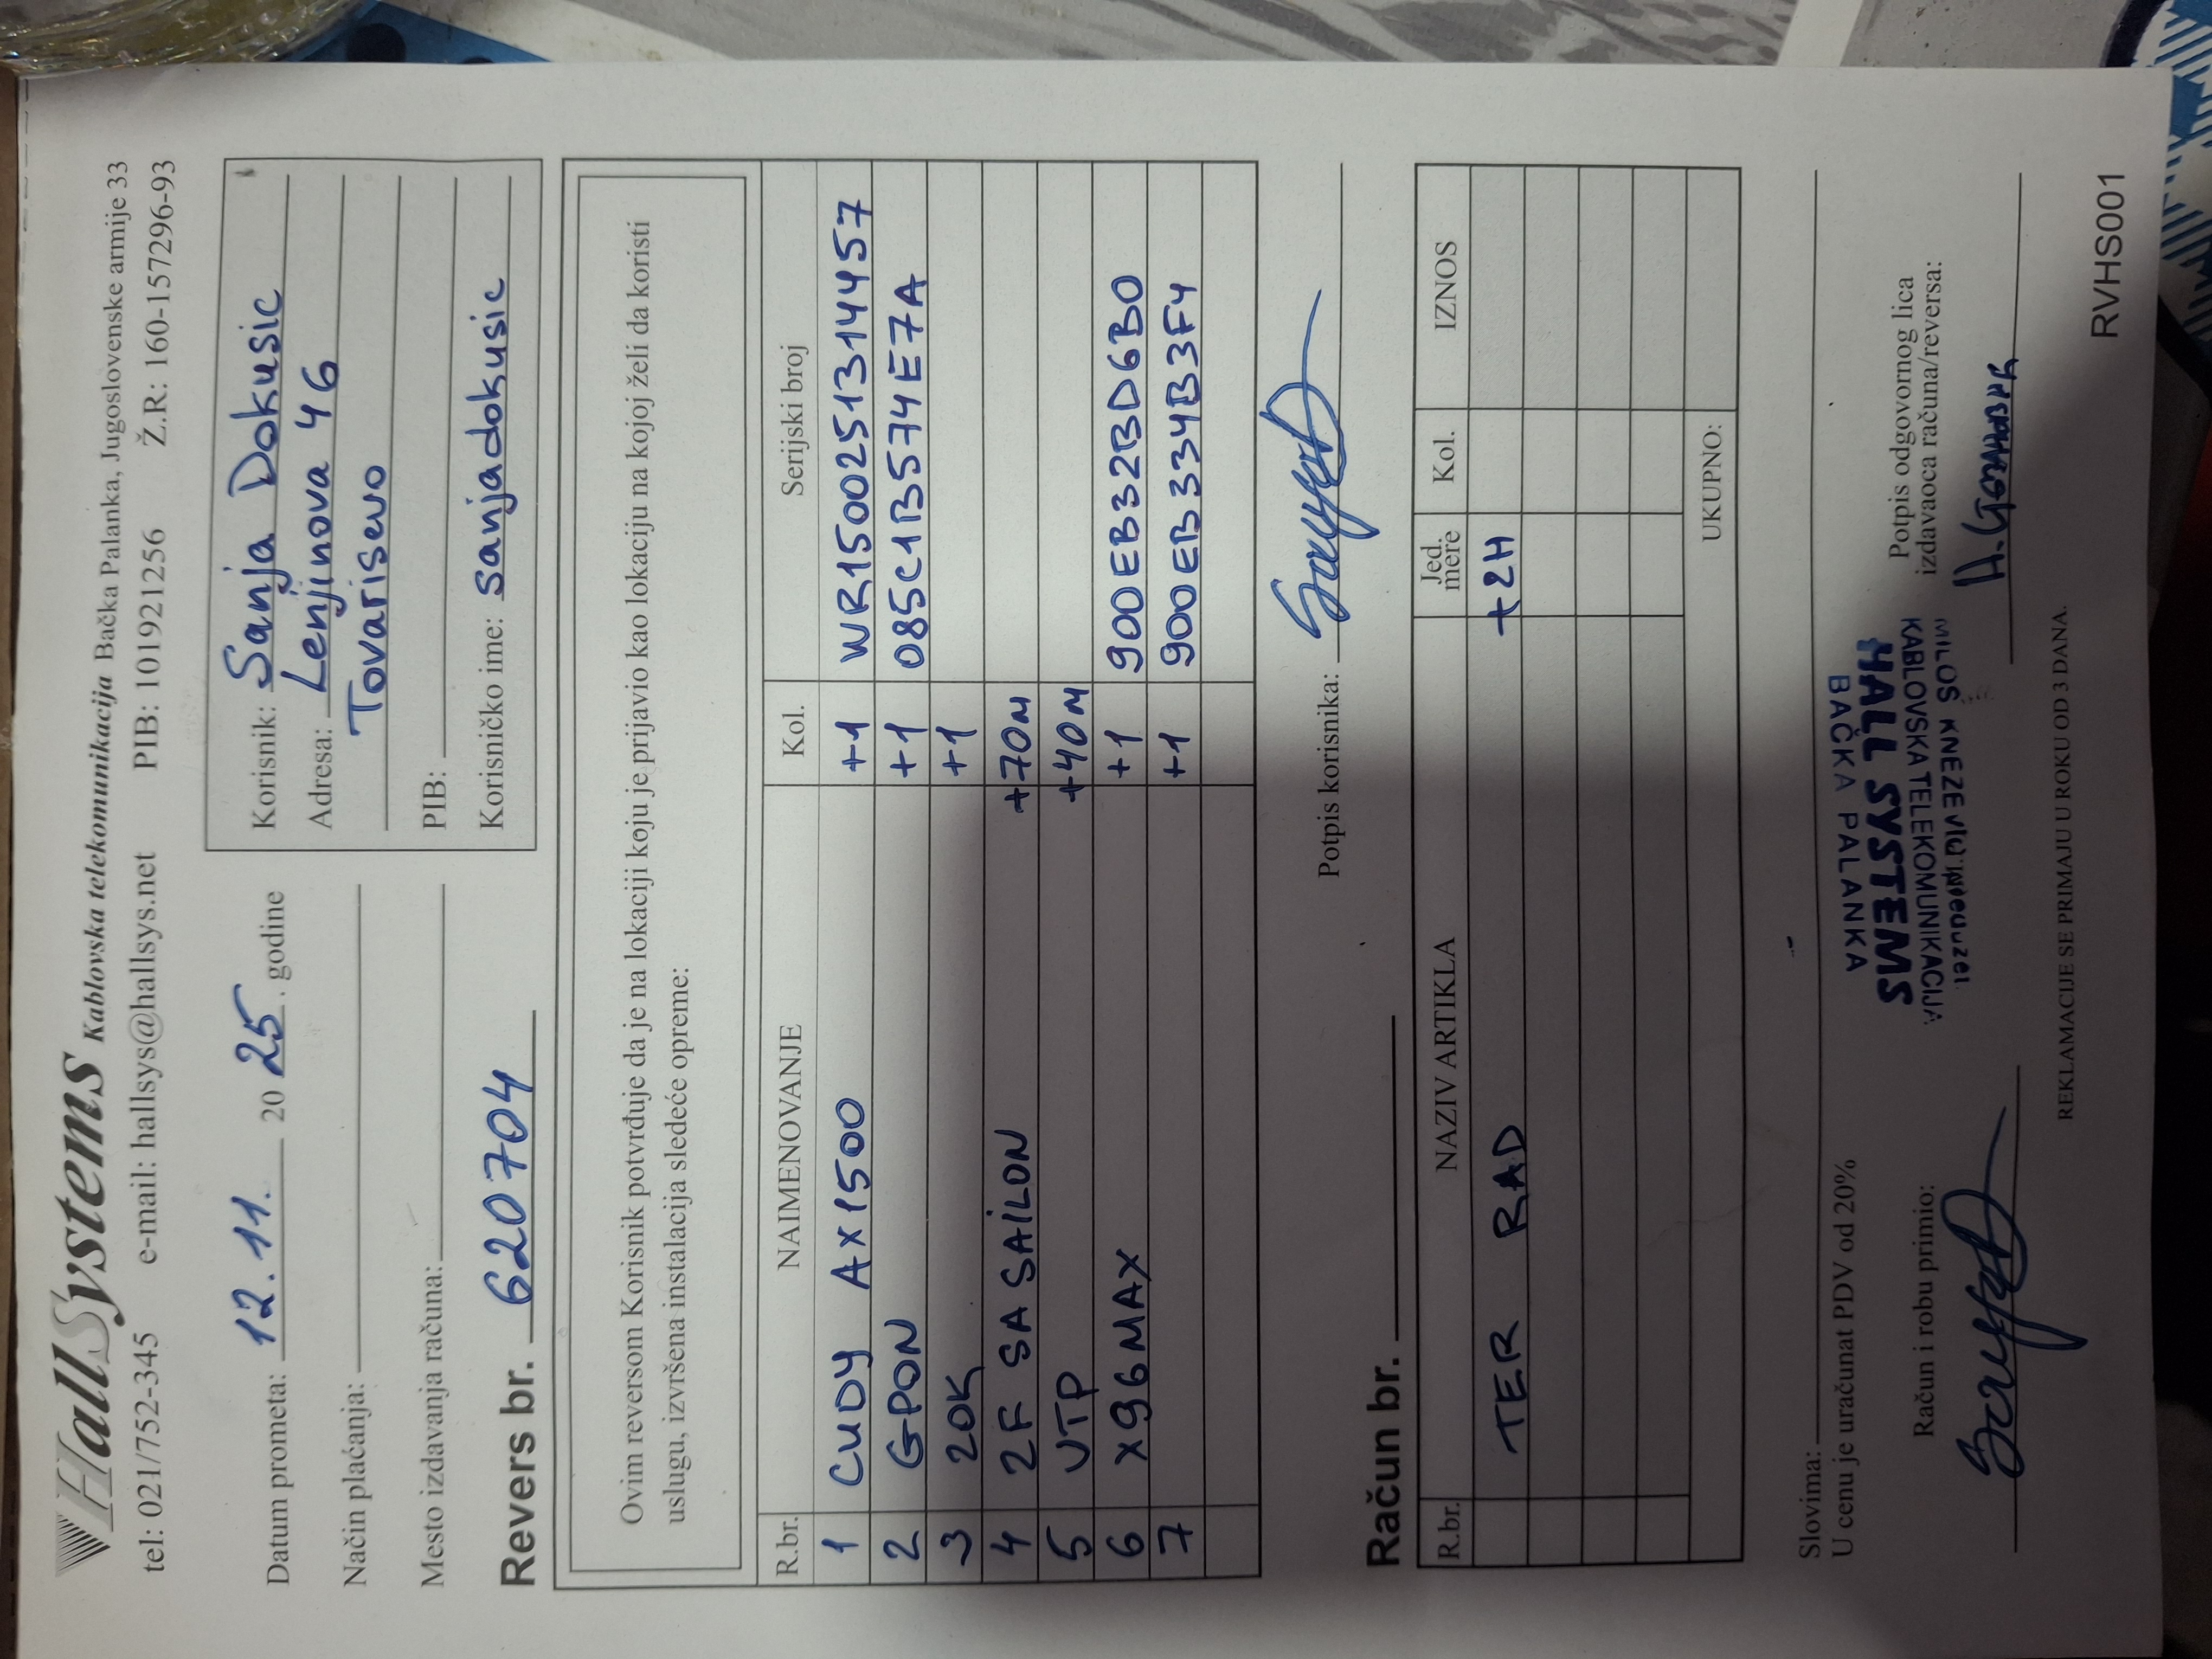 HallSystems Kablovska telekomunikacija Bačka Palanka, Jugoslovenske armije 33
tel: 021/752-345 e-mail: hallsys@hallsys.net PIB: 101921256 Ž.R.: 160-157296-93
Datum prometa: 12.11. 20 25. godine
Način plaćanja:
Mesto izdavanja računa:
Revers br. 620704
Korisnik: Sanja Dokusic
Adresa: Lenjinova 46
Tovarisevo
PIB:
Korisničko ime: sanjadokusic
Ovim reversom Korisnik potvrđuje da je na lokaciji koju je prijavio kao lokaciju na kojoj želi da koristi
uslugu, izvršena instalacija sledeće opreme:
R.br. NAIMENOVANJE Kol. Serijski broj
1 CUDY AX1500 +1 WR1500251314457
2 GPON +1 085C1B574E7A
3 ZOK +1
4 2F SA SAILON +70M
5 UTP +40M
6 X96MAX +1 900EB32BD6B0
7 +1 900EB334B3F4
Potpis korisnika:
Račun br.
R.br. NAZIV ARTIKLA Jed. mere Kol. IZNOS
TER RAD +2H
UKUPNO:
Slovima:
U cenu je uračunat PDV od 20%
Račun i robu primio:
MILOŠ KNEZEVIĆ
KABLOVSKA TELEKOMUNIKACIJA
HALL SYSTEMS
BAČKA PALANKA
Potpis odgovornog lica
izdavaoca računa/reversa:
REKLAMACIJE SE PRIMAJU U ROKU OD 3 DANA.
RVHS001